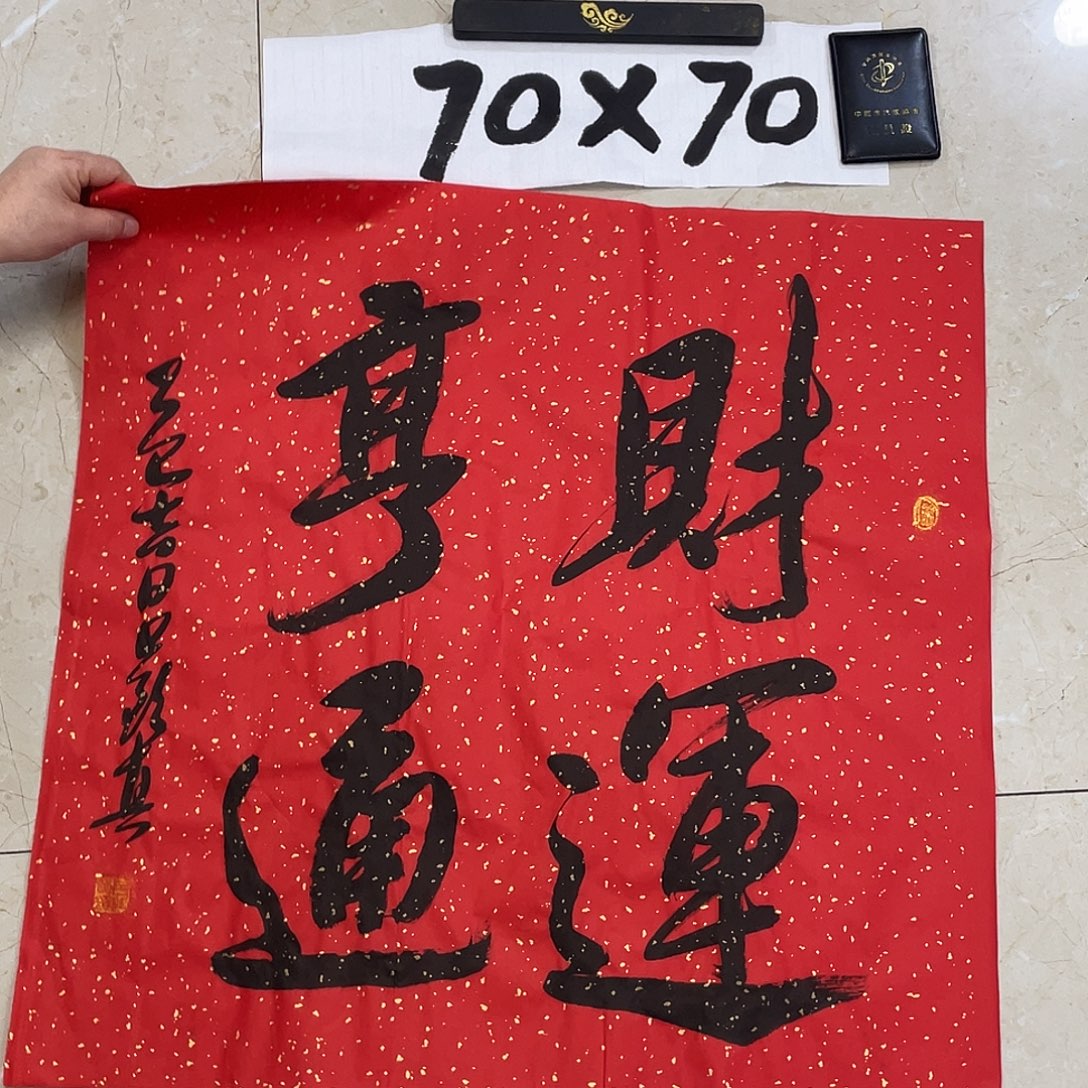 70×70
財運
亨通
乙巳吉日